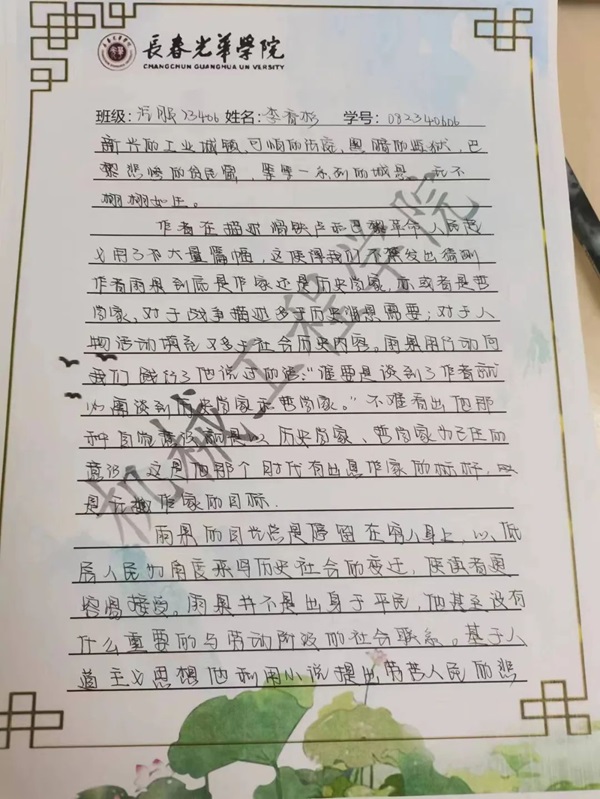 長春光華學院
CHANGCHUN GUANGHUA UN VERSITY
班级: 汽服23406 姓名: 李育 学号: 082340606
新兴的工业城镇,可怕的街垒,黑暗的监狱,巴
黎悲惨的贫民窟,等等一系列的城景 无不
栩栩如生。
作者在描述滑铁卢和巴黎革命人民起
义用了不大量篇幅,这使得我们不禁发出猜测
作者雨果到底是作家还是历史学家,亦或者是哲
学家,对于战争描述多于历史 需要;对于人
物活动填充 多于社会历史内容。雨果用行动向
我们践行了他说过的话:"谁要是谈到了作者就
必需谈到历史学家和哲学家。"不难看出他那
种自觉意识 是以历史学家、哲学家为己任的
意识,这是他那个时代有出息作家的标杆,
是无数作家的目标.
雨果的目光总是停留在穷人身上,以低
层人民的角度来写历史社会的变迁,使读者更
容易接受。雨果并不是出身于平民,他甚至没有
什么重要的与劳动阶级的社会联系。基于人
道主义思想他利用小说提出劳苦人民的悲
机械工程学院